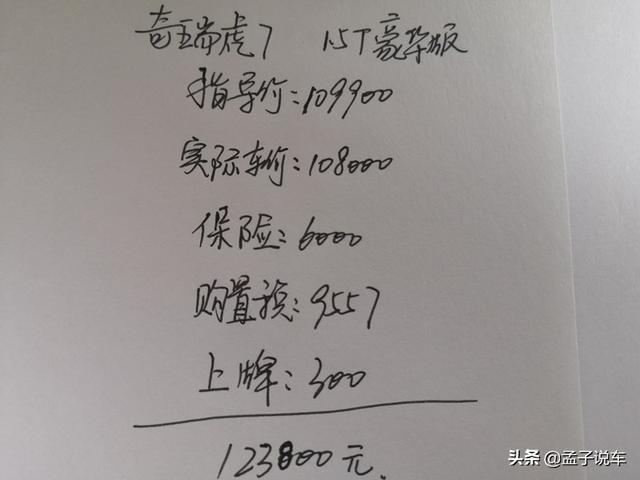 奇瑞虎7 1.5T豪华版
指导价:109900
实际车价:108000
保险:6000
购置税:9557
上牌:300
123800元.
头条 @孟子说车